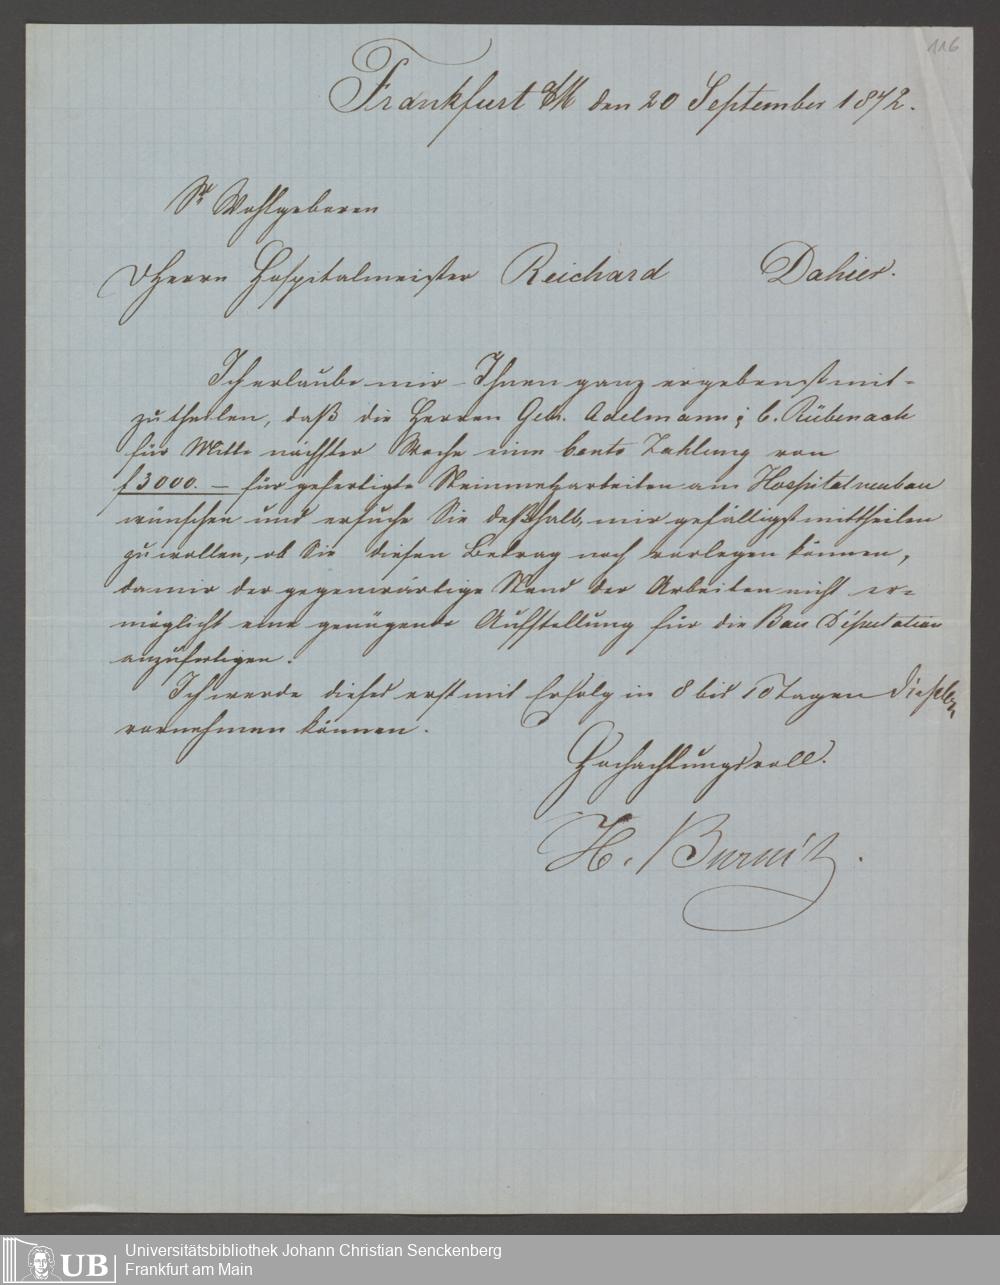 116
Frankfurt a/M den 20 September 1872.
Sr Wohlgeboren
Herrn Hospitalmeister Reichard Dahier.
Ich erlaube mir Ihnen ganz ergebenst mit-
zutheilen, daß die Herren Geb. Adelmann & C. Rübenach
für Mitte nächster Woche eine conto Zahlung von
f 3000. — für gefertigte Steinmetzarbeiten am Hospitalneubau
wünschen und ersuche Sie deßhalb, mir gefälligst mittheilen
zu wollen, ob Sie diesen Betrag noch vorlegen können,
da mir der gegenwärtige Stand der Arbeiten nicht er-
möglicht eine genügende Aufstellung für die Bau Deputation
anzufertigen.
Ich werde dieses erst mit Erfolg in 8 bis 10 Tagen
vornehmen können.
Hochachtungsvoll.
H. Burnitz.
UB
Universitätsbibliothek Johann Christian Senckenberg
Frankfurt am Main